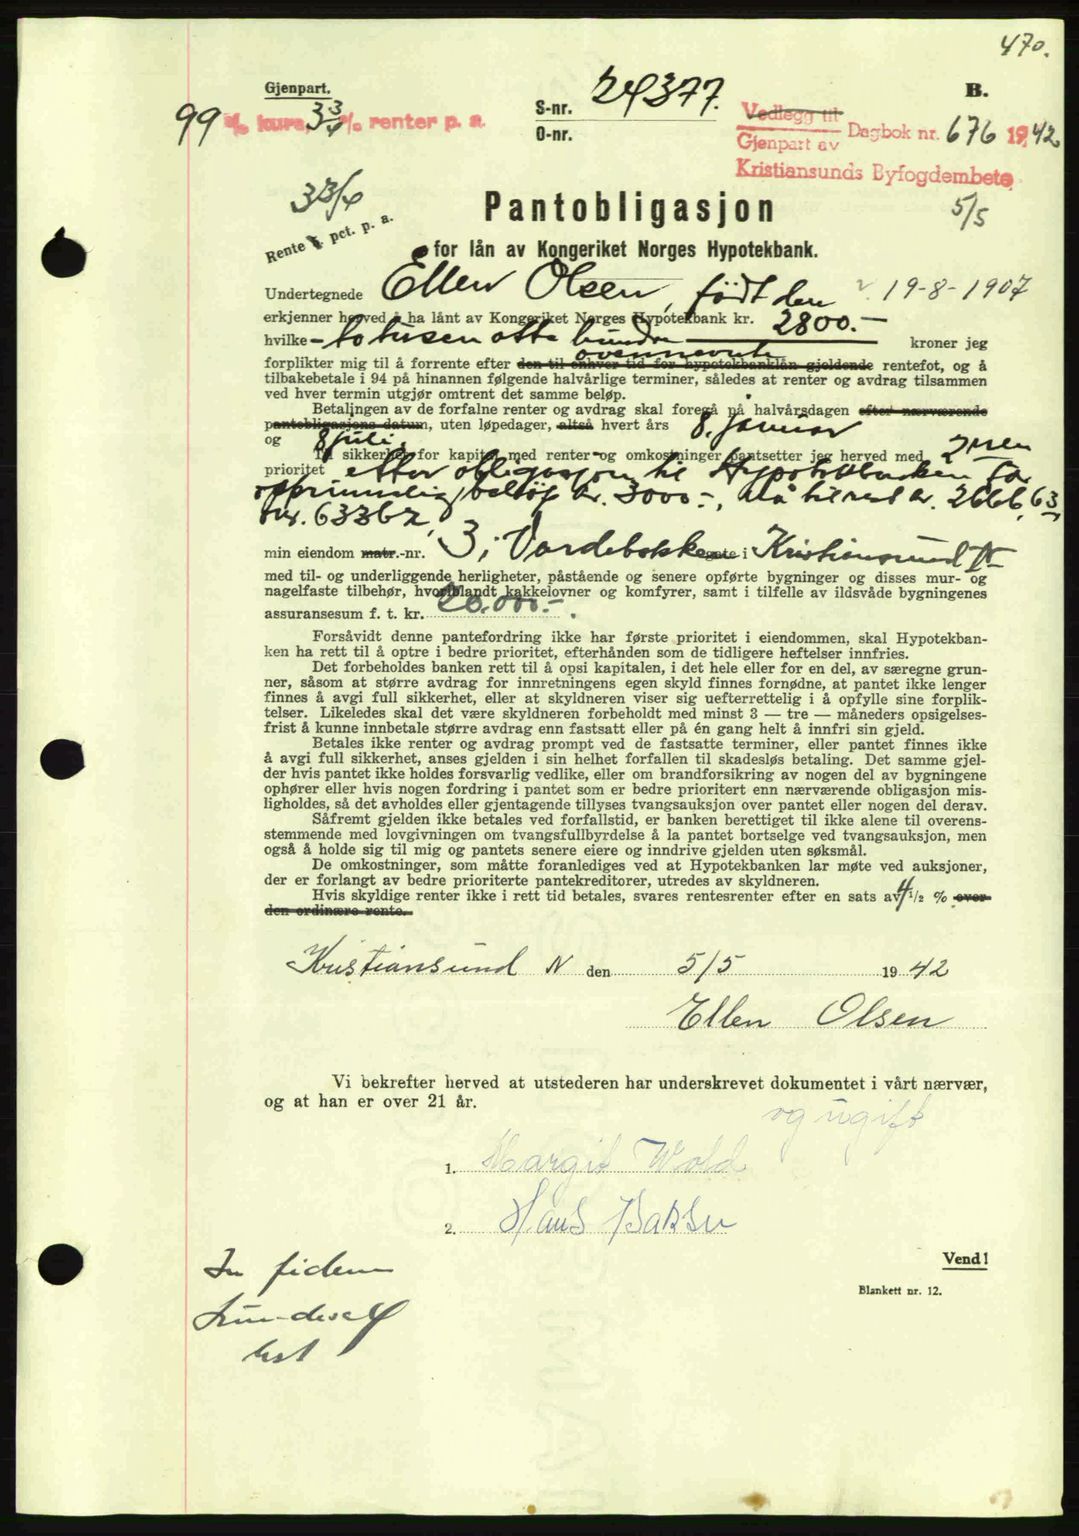 470.
Gjenpart.
S-nr. 24377.
B.
99 % kurs 3 3/4 % renter p. a.
O-nr.
Vedlegg til
Gjenpart av Dagbok nr. 676 1942
Kristiansunds Byfogdembete
5/5
3 3/4
Rente pct. p. a.
Pantobligasjon
for lån av Kongeriket Norges Hypotekbank.
Undertegnede Ellen Olsen, født den 19-8-1907
erkjenner herved å ha lånt av Kongeriket Norges Hypotekbank kr. 2800.-
hvilke - totusen otte hundre kroner jeg
ovennevnte
forplikter mig til å forrente efter den til enhver tid for hypotekbanklån gjeldende rentefot, og å
tilbakebetale i 94 på hinannen følgende halvårlige terminer, således at renter og avdrag tilsammen
ved hver termin utgjør omtrent det samme beløp.
Betalingen av de forfalne renter og avdrag skal foregå på halvårsdagen efter nærværende
pantobligasjons datum, uten løpedager, altså hvert års 8. januar
og 8 juli.
Til sikkerhet for kapital med renter og omkostninger pantsetter jeg herved med 2nen
prioritet etter obligasjon til Hypotekbanken for
opprinnelig beløp kr. 3000.-, nå til rest kr. 2666,63
nr. 63362,
min eiendom matr.-nr. 3, i Vardebakke gate i Kristiansund N
med til- og underliggende herligheter, påstående og senere opførte bygninger og disses mur- og
nagelfaste tilbehør, hvoriblandt kakkelovner og komfyrer, samt i tilfelle av ildsvåde bygningenes
assuransesum f. t. kr. 20.000.-.
Forsåvidt denne pantefordring ikke har første prioritet i eiendommen, skal Hypotekban-
ken ha rett til å optre i bedre prioritet, efterhånden som de tidligere heftelser innfries.
Det forbeholdes banken rett til å opsi kapitalen, i det hele eller for en del, av særegne grun-
ner, såsom at større avdrag for innretningens egen skyld finnes fornødne, at pantet ikke lenger
finnes å avgi full sikkerhet, eller at skyldneren viser sig uefterrettelig i å opfylle sine forplik-
telser. Likeledes skal det være skyldneren forbeholdt med minst 3 — tre — måneders opsigelses-
frist å kunne innbetale større avdrag enn fastsatt eller på én gang helt å innfri sin gjeld.
Betales ikke renter og avdrag prompt ved de fastsatte terminer, eller pantet finnes ikke
å avgi full sikkerhet, anses gjelden i sin helhet forfallen til skadesløs betaling. Det samme gjel-
der hvis pantet ikke holdes forsvarlig vedlike, eller om brandforsikring av nogen del av bygningene
ophører eller hvis nogen fordring i pantet som er bedre prioritert enn nærværende obligasjon mis-
ligholdes, så det avholdes eller gjentagende tillyses tvangsauksjon over pantet eller nogen del derav.
Såfremt gjelden ikke betales ved forfallstid, er banken berettiget til ikke alene til overens-
stemmende med lovgivningen om tvangsfullbyrdelse å la pantet bortselge ved tvangsauksjon, men
også å holde sig til mig og pantets senere eiere og inndrive gjelden uten søksmål.
De omkostninger, som måtte foranlediges ved at Hypotekbanken lar møte ved auksjoner,
der er forlangt av bedre prioriterte pantekreditorer, utredes av skyldneren.
Hvis skyldige renter ikke i rett tid betales, svares rentesrenter efter en sats av 4 1/2 % over
den ordinære rente.
Kristiansund N den 5/5 1942
Ellen Olsen
Vi bekrefter herved at utstederen har underskrevet dokumentet i vårt nærvær,
og at han er over 21 år.
og ugift
1. Margit Wold
2. Hans Bakken
In fidem
Vend!
Blankett nr. 12.